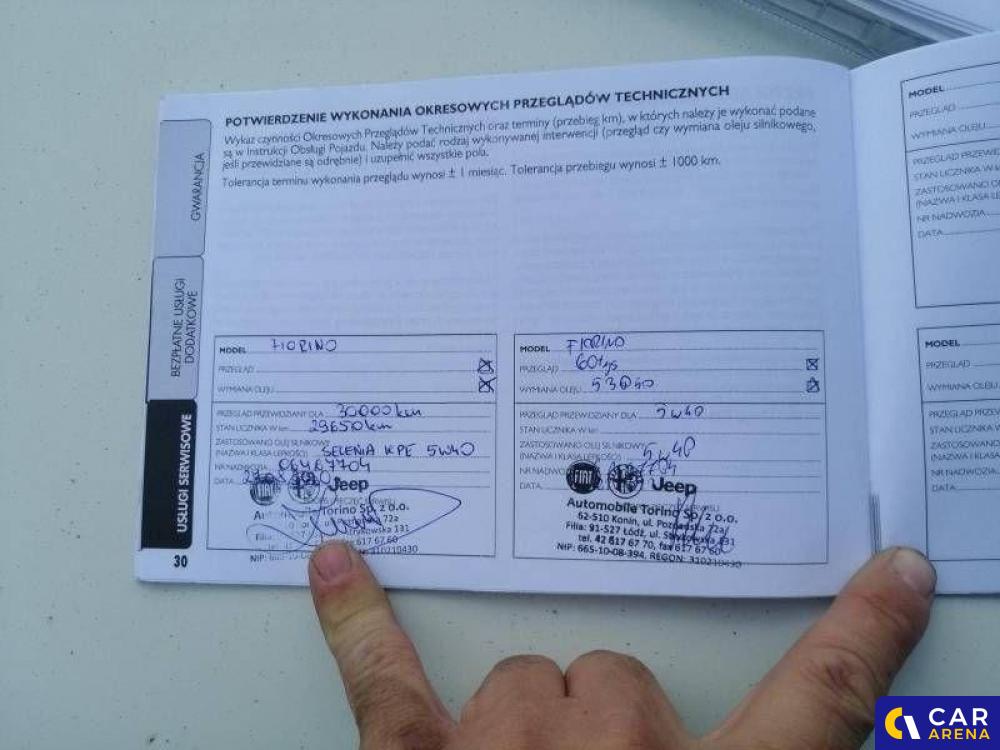 POTWIERDZENIE WYKONANIA OKRESOWYCH PRZEGLĄDÓW TECHNICZNYCH
Wykaz czynności Okresowych Przeglądów Technicznych oraz terminy (przebieg km), w których należy je wykonać podane
są w Instrukcji Obsługi Pojazdu. Należy podać rodzaj wykonywanej interwencji (przegląd czy wymiana oleju silnikowego,
jeśli przewidziane są odrębnie) i uzupełnić wszystkie pola.
Tolerancja terminu wykonania przeglądu wynosi ± 1 miesiąc. Tolerancja przebiegu wynosi ± 1000 km.
GWARANCJA
BEZPŁATNE USŁUGI
DODATKOWE
USŁUGI SERWISOWE
30
MODEL FIORINO
PRZEGLĄD
WYMIANA OLEJU
PRZEGLĄD PRZEWIDZIANY DLA 30000 km
STAN LICZNIKA W km 29650 km
ZASTOSOWANO OLEJ SILNIKOWY
(NAZWA I KLASA LEPKOŚCI) SELENIA KPE 5W40
NR NADWOZIA 06467704
DATA
FIAT Jeep
Torino Sp. z o.o.
72a
Filia: 131
617 67 60
NIP: 310210430
MODEL FIORINO
PRZEGLĄD 60tys
WYMIANA OLEJU
PRZEGLĄD PRZEWIDZIANY DLA 5W40
STAN LICZNIKA W km
ZASTOSOWANO OLEJ SILNIKOWY
(NAZWA I KLASA LEPKOŚCI) 5W40
NR NADWOZIA
DATA
FIAT Jeep
Automobile Torino Sp. z o.o.
62-510 Konin, ul. Poznańska 72a
Filia: 91-527 Łódź, ul. Strykowska 131
tel. 42 617 67 70, fax 617 67 60
NIP: 665-10-08-394, REGON: 310210430
MODEL
PRZEGLĄD
WYMIANA OLEJU
PRZEGLĄD PRZEWID
STAN LICZNIKA W k
ZASTOSOWANO OL
(NAZWA I KLASA LE
NR NADWOZIA
DATA
MODEL
PRZEGLĄD
WYMIANA OLEJU
PRZEGLĄD PRZEW
STAN LICZNIKA W
ZASTOSOWANO
(NAZWA I KLASA
NR NADWOZIA
DATA
CAR
ARENA